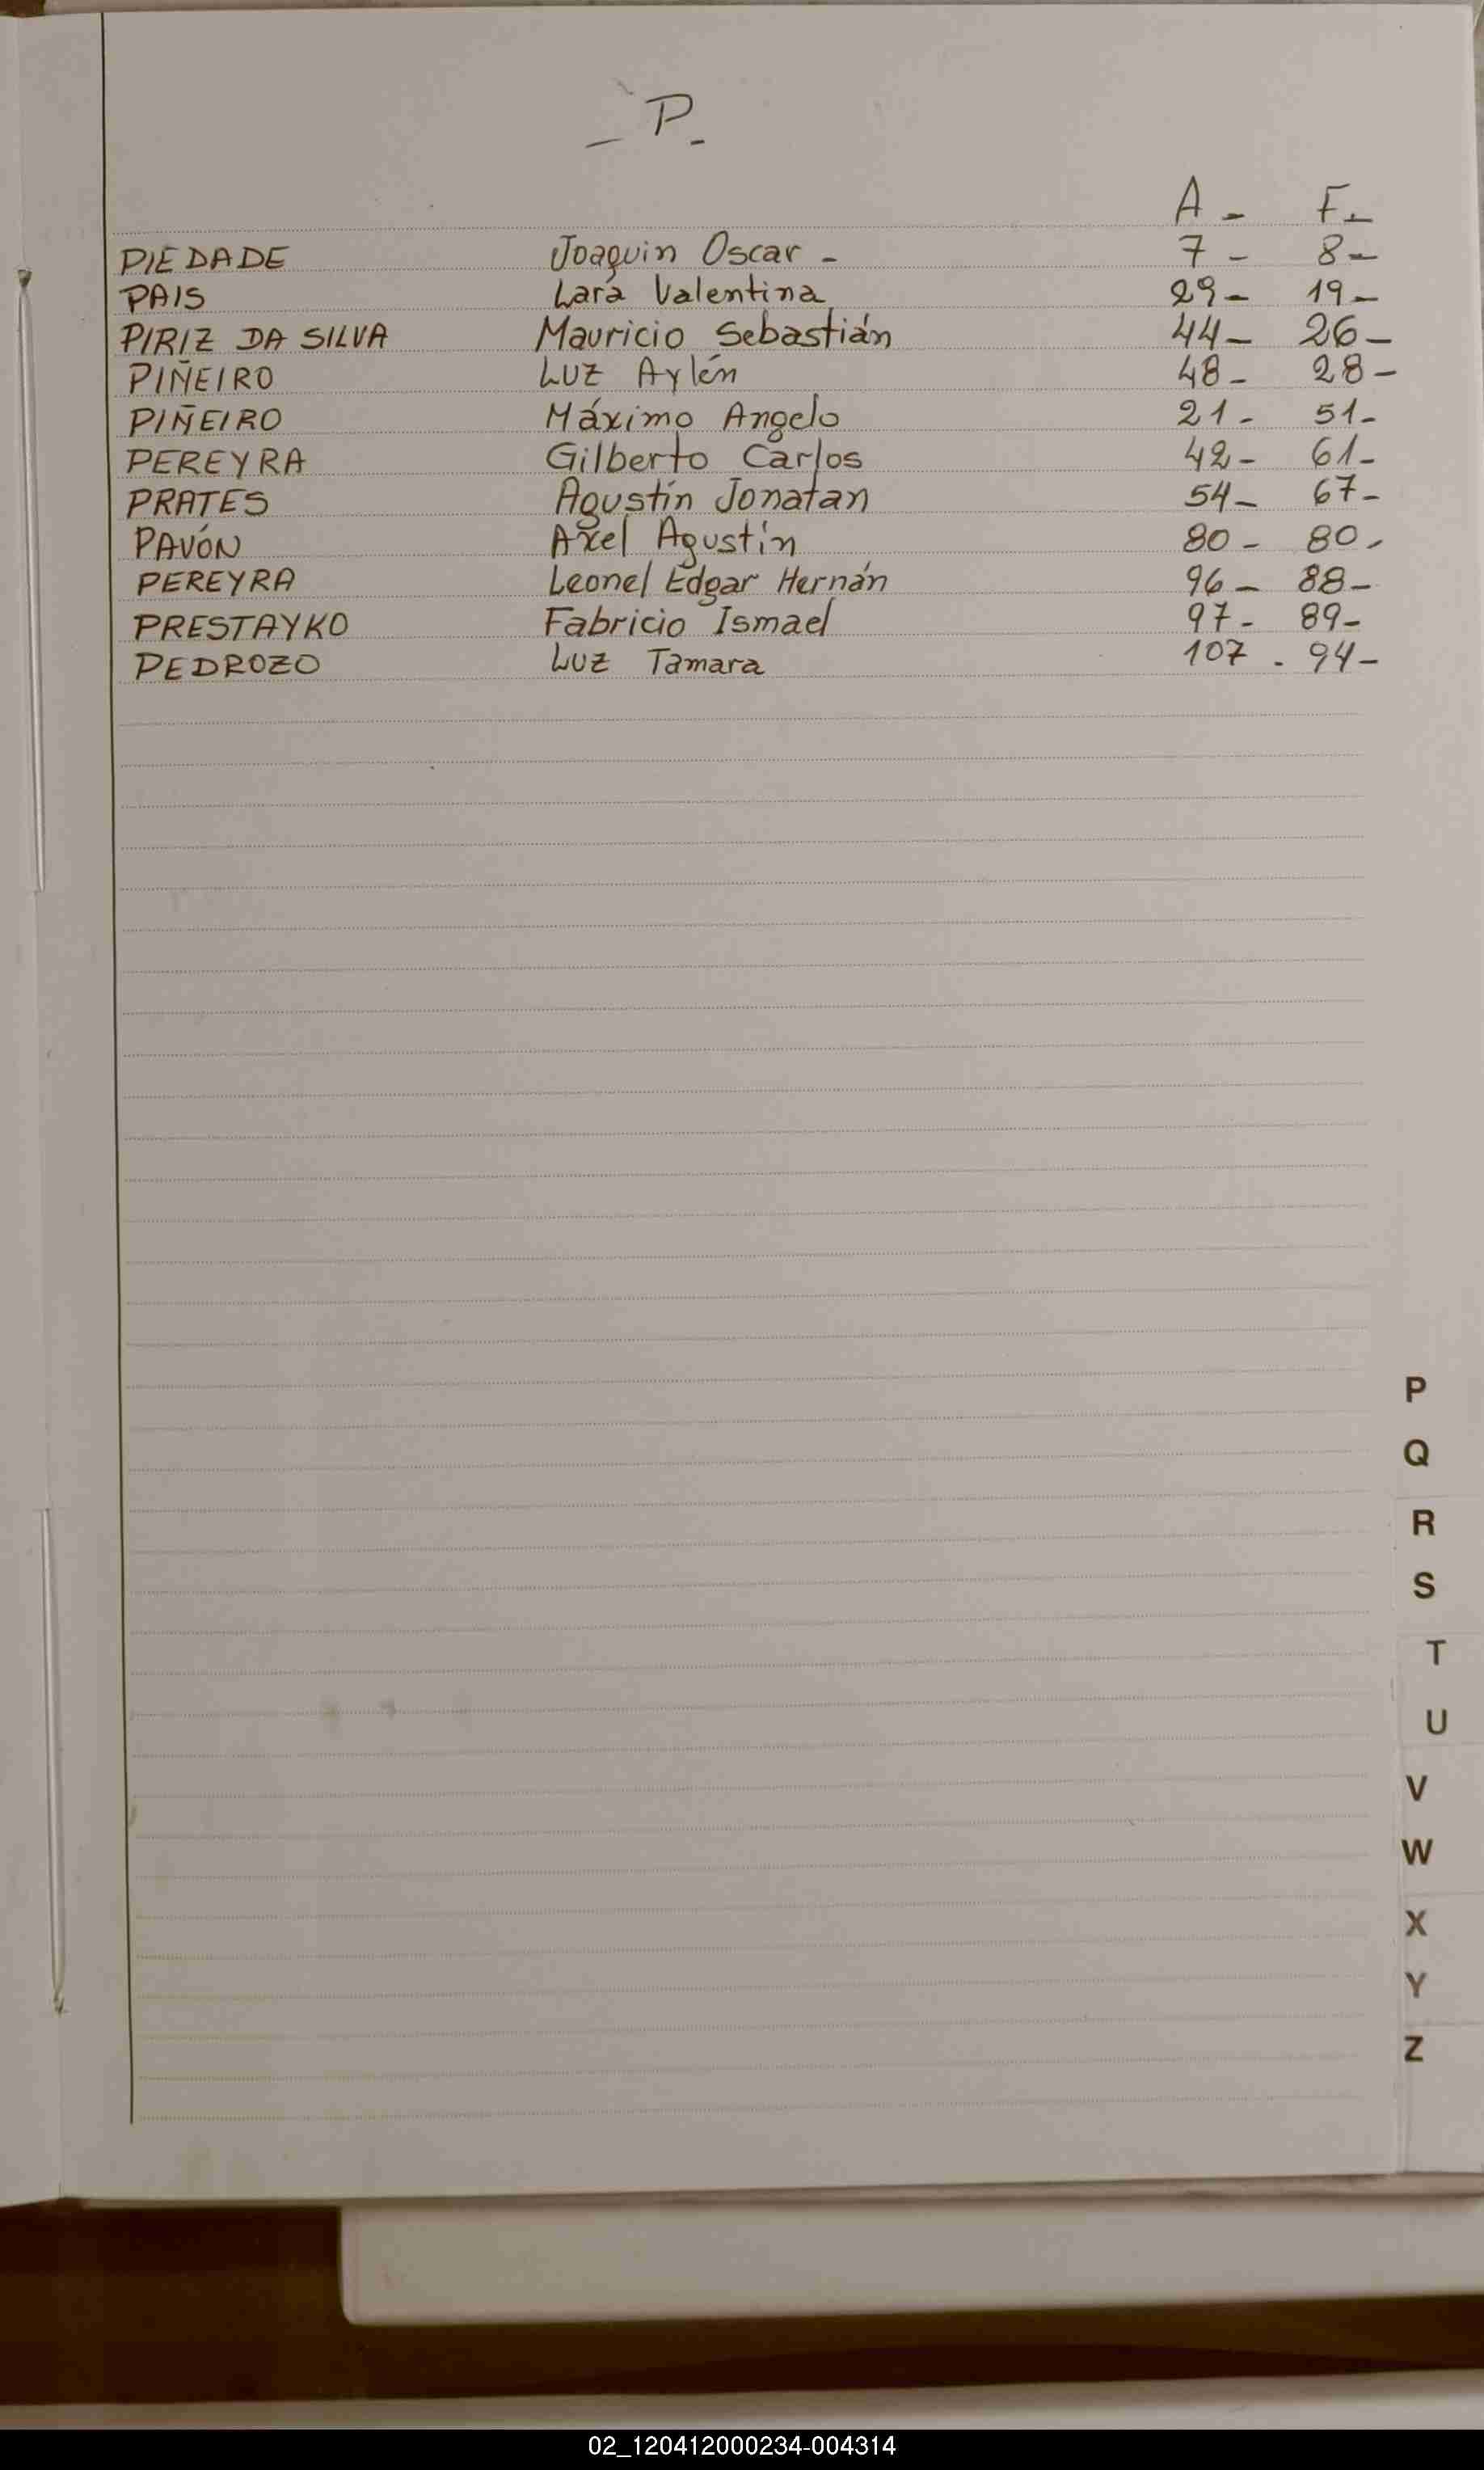 _ P_
A - F.-
PIEDADE Joaquin Oscar - 7 - 8-
PAIS Lara Valentina 29- 19-
PIRIZ DA SILVA Mauricio Sebastián 44- 26-
PIÑEIRO Luz Aylén 48- 28-
PIÑEIRO Máximo Angelo 21- 51-
PEREYRA Gilberto Carlos 42- 61-
PRATES Agustín Jonatan 54- 67-
PAVÓN Axel Agustín 80- 80-
PEREYRA Leonel Edgar Hernán 96- 88-
PRESTAYKO Fabricio Ismael 97- 89-
PEDROZO Luz Tamara 107 - 94-
P
Q
R
S
T
U
V
W
X
Y
Z
02_120412000234-004314